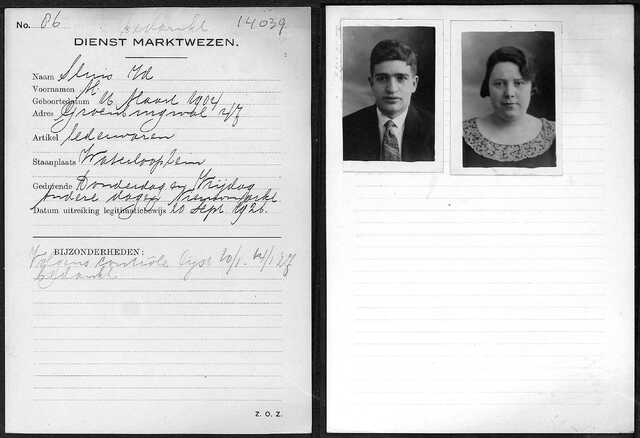 No. 86 bedankt 14039
DIENST MARKTWEZEN.
Naam Sluis Id
Voornamen M
Geboortedatum 16 Maart 1904
Adres Groeningwal 2/7
Artikel lederwaren
Staanplaats Waterlooplein
Gedurende Donderdag en Vrijdag
andere dagen Nieuwmarkt
Datum uitreiking legitimatiebewijs 20 Sept. 1926.
BIJZONDERHEDEN:
Volgens controle lijst 10/1 - 14/1 27
bedankt
Z. O. Z.